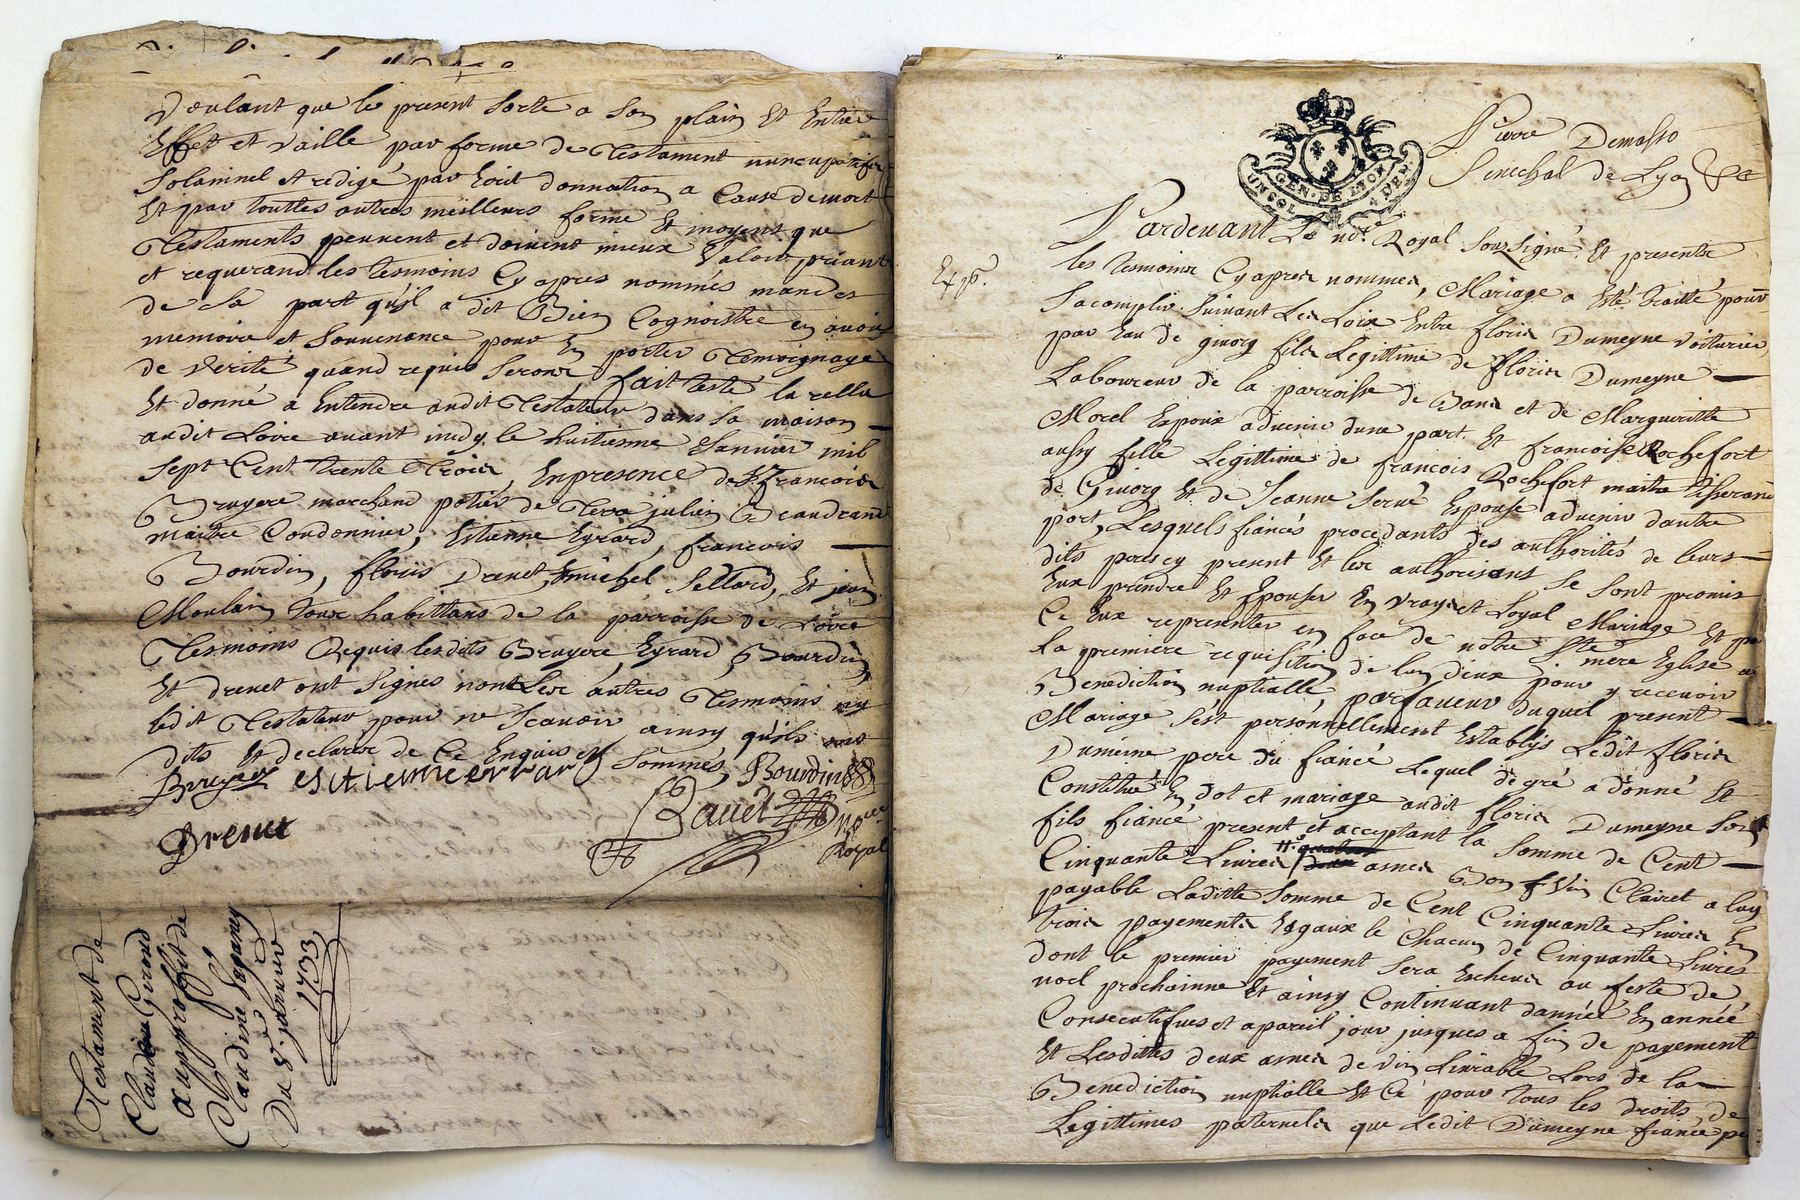 Voulant que le present sorte a son plain Et Entier
Effet et vaille par forme de Testament nuncupatif
Solamnel et redigé par Ecrit donnation a Cause de mort
Et par touttes autres meilleurs forme Et moyens que
Testaments peuvent et doivent mieux Valoir priant
et requerand les tesmoins Cy apres nommés mandes
de sa part qu'jl a dit Bien Cognoistre en avoir
memoire et Souvenance pour En porter Temoignage
de verité quand requis Seronts, fait testé la rellu
Et donné a Entendre audit Testateur dans sa maison
audit Loire avant midy le huitieme Janvier mil
sept Cent trente Trois, En presence de Sr francois
Bruyere marchand potier de Terre julien Beaudrand
maitre Cordonnier, Estienne Eyrard, francois
Bourdin, floris Drevet, michel Sellard, Et jean
Moulain tous habittans de la parroisse de Loire
Tesmoins Requis lesdits Bruyere, Eyrard, Bourdin,
Et drevet ont signés non Les autres Tesmoins ny
ledit Testateur pour ne Scavoir ainsy qu'ils ont
dits Et declarer de Ce Enquis et Sommés,
Bruyere estienne errard Bourdin
Drevet Ravet Nore
Royal
Testament de
Claude Girond
au proffit de
Claudine
Du 8e janvier
1733
GEN. DE LYON
UN SOL 4 DEN.
Pierre Demasso
Senechal de Lyon &a
Exp.
Pardevant Le nore Royal Soussigné Et presents
les tesmoins Cy apres nommes, Mariage a Eté traitté pour
Sacomplir suivant Les Loix Entre floris Dumeyne voiturier
par Eau de givorg fils Legittime de floris Dumeyne
Laboureur de la parroisse de Bans et de Margueritte
Morel Epoux advenir dune part Et francoise Rochefort
aussy fille Legittime de francois Rochefort maitre tisserand
de Givorg Et de Jeanne Servé Epouse advenir dautre
part, Lesquels fiancés procedants des authorités de leurs
dits peres cy present Et les authorisans se sont promis
Eux prendre Et Epouser En vray et Loyal Mariage Et pr
Ce Eux representer en face de notre Ste mere Eglise a
La premiere requisition de lun deux pour y recevoir
Benediction nuptialle, parfaveur duquel present
Mariage s'est personnellement Establis Ledit floris
Dumeine pere du fiancé Lequel de gré a donné Et
Constitué En dot et mariage audit floris Dumeyne Son
fils fiancé present et acceptant la Somme de Cent
Cinquante Livres, anées Bon Vin Clairet a luy
payable Laditte Somme de Cent Cinquante Livres En
trois payements Esgaux le Chacun de Cinquante Livres
dont le premier payement sera Echeus au feste de
noel prochainne Et ainsy Continuant dannée En année
Consecutifves et apareil jour jusques a fin de payement
Et Lesdittes deux anées de vin Livrable Lors de la
Benediction nuptialle Et Ce pour tous les droits de
Legittimes paternels que Ledit Dumeyne fiancé